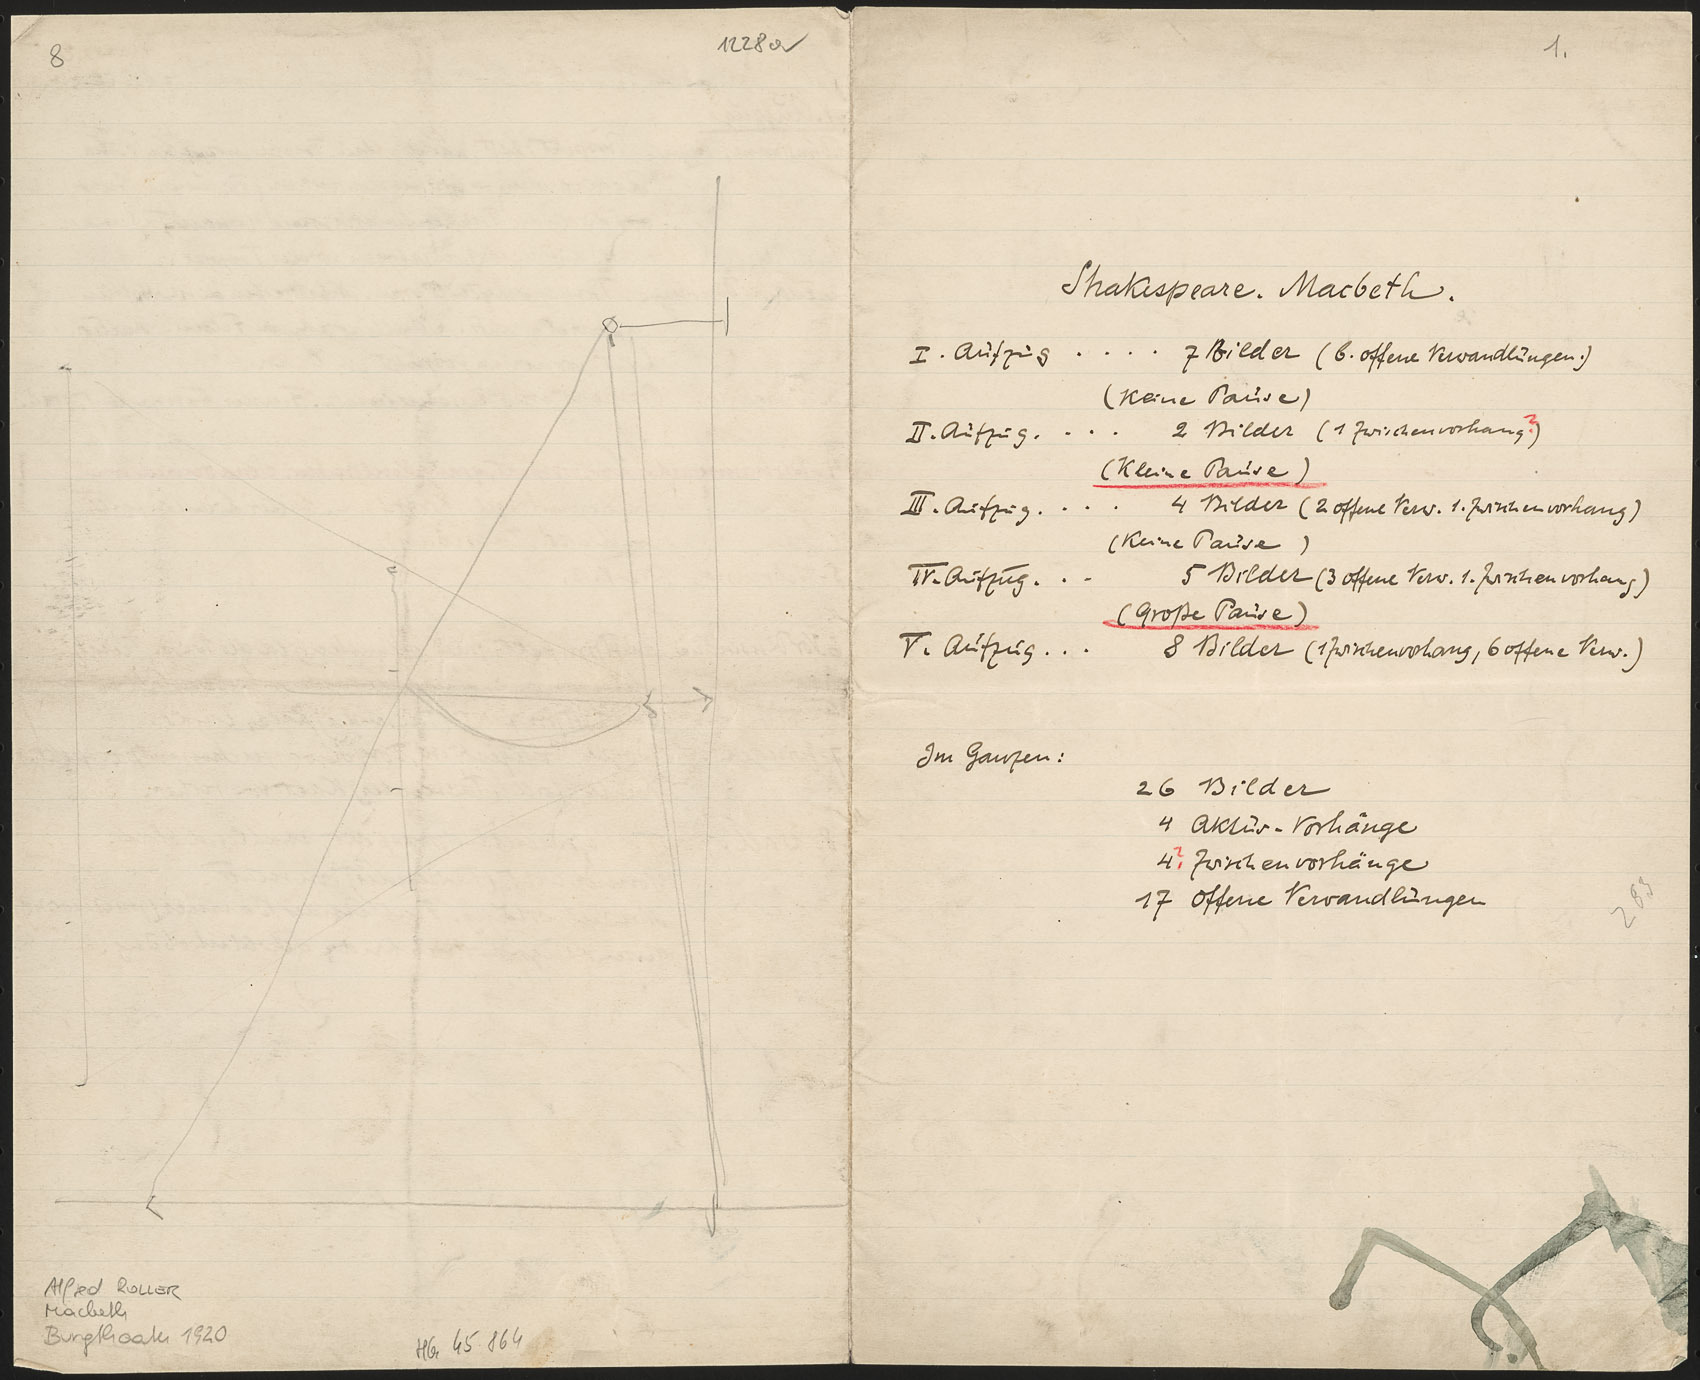 8
1228a
Alfred ROLLER
Macbeth
Burgtheater 1920
HG 45 864
1.
Shakespeare. Macbeth.
I. Aufzug .... 7 Bilder (6. offene Verwandlungen.)
(Keine Pause)
II. Aufzug. ... 2 Bilder (1 Zwischenvorhang?)
(Kleine Pause)
III. Aufzug. ... 4 Bilder (2 offene Verw. 1. Zwischenvorhang)
(Keine Pause)
IV. Aufzug. .. 5 Bilder (3 offene Verw. 1. Zwischenvorhang)
(Große Pause)
V. Aufzug... 8 Bilder (1 Zwischenvorhang, 6 offene Verw.)
Im Ganzen:
26 Bilder
4 Aktus-Vorhänge
4? Zwischenvorhänge
17 offene Verwandlungen